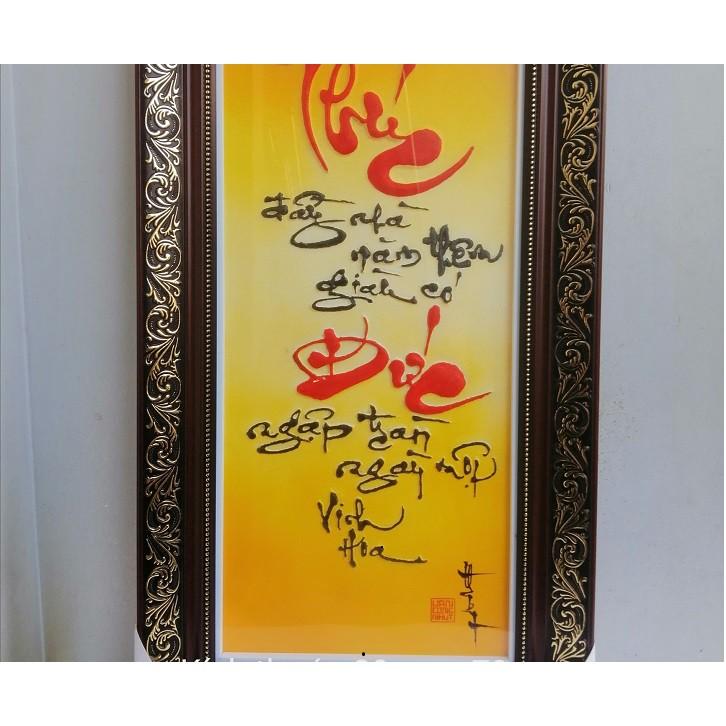 Phúc
đầy nhà
năm thêm
giàu có
Đức
ngập tràn
ngày một
Vinh
Hoa